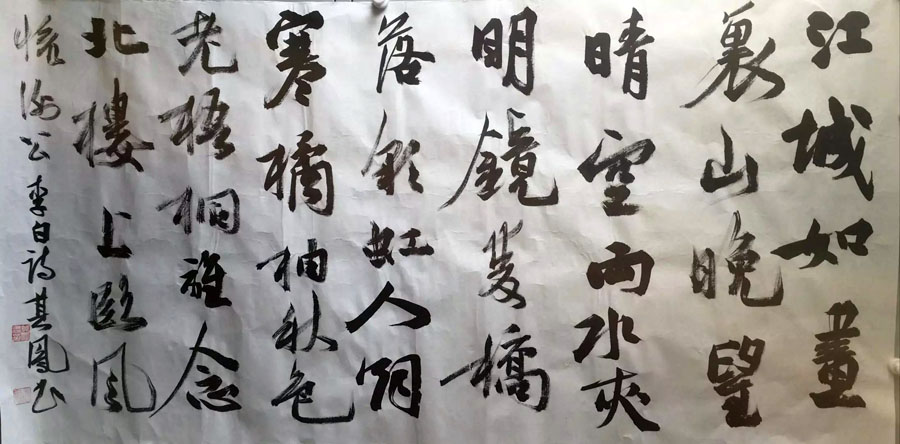 江城如畫
裏山晚望
晴空兩水夾
明鏡雙橋
落彩虹人烟
寒橘柚秋色
老梧桐誰念
北樓上臨風
懷謝公李白詩其鳳书